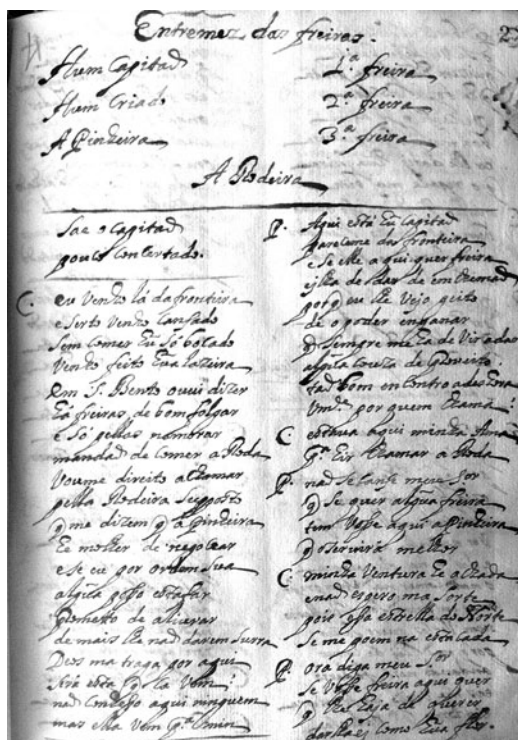 Entremez das freiras.
2
Hum Capitaõ
Hum Criado
A Pinheira
1.ª freira
2.ª freira
3.ª freira
A Rodeira
Sae o Capitaõ
pouco concertado.
C. eu Venho lá da fronteira
e serto Venho cansado
Sem comer hu só bocado
Venho feito hua lazeira
em S. Bento ouui dizer
ha freiras de bom folgar
e só pellas namorar
mandaõ de comer a Roda
Voume direito a chamar
pella Rodeira
q me dizem q a Pinheira
he molher de negocear
e se eu por ordem sua
algua posso
de aliuiar
de mais lhe naõ darem surra
Deos ma traga por aqui
Será esta q la Vem?
naõ conheço aqui ninguem
mas ella Vem p.ª mim
P. Aqui está hu Capitaõ
pareceme da fronteira
e se elle a qui quer freira
de
porq eu lhe Vejo geito
de o poder enganar
q sempre me ha de Vir a dar
algua couza de proueito.
taõ bom encontro a
Vm.ce por quem chama?
C. estaua aqui minha Ama
p.ª Eir chamar a Roda
P. naõ se canse meu Sor
q se quer algua freira
tem Vosse aqui a Pinheira
q o seruirá melhor
C. minha Ventura he achada
e naõ espero ma sorte
pois essa estrella do Norte
Se me poem na
P. ora diga meu S.or
Se Vosse freira aqui quer
q lhe haja de querer
darlha ei como hua flor.